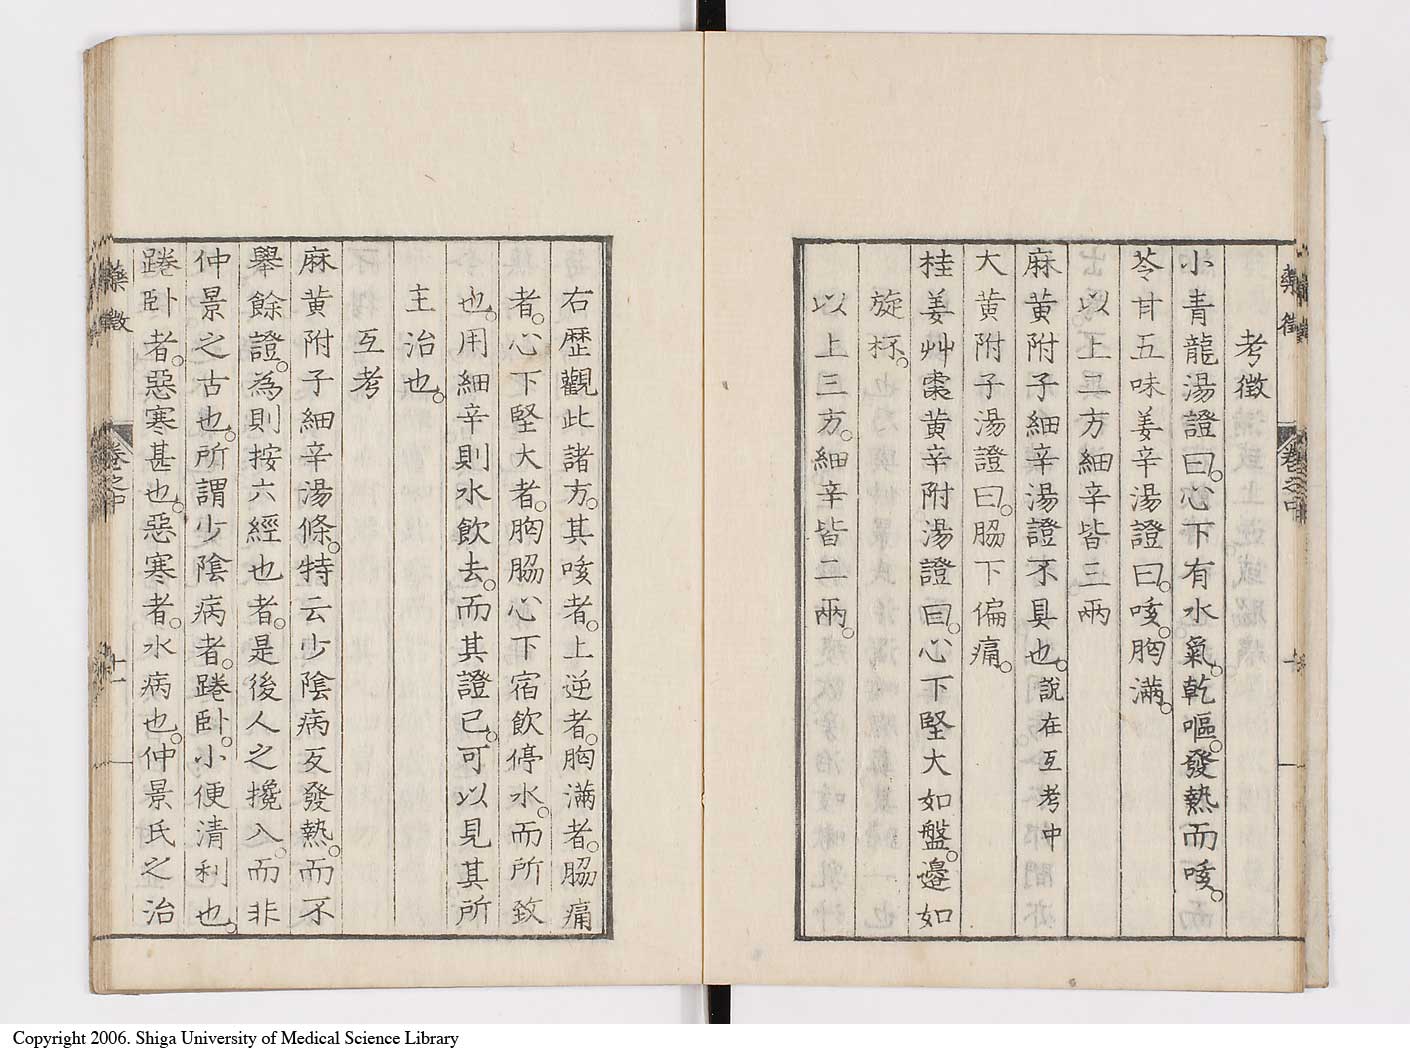 考徵
小青龍湯證曰。心下有水氣。乾嘔。發熱而咳。
苓甘五味姜辛湯證曰。咳。胸滿。
以上二方細辛皆三兩
麻黃附子細辛湯證不具也。說在互考中
大黃附子湯證曰。脇下偏痛。
桂姜艸棗黃辛附湯證曰。心下堅大如盤。邊如
旋柸。
以上三方。細辛皆二兩。
右歷觀此諸方。其咳者。上逆者。胸滿者。脇痛
者。心下堅大者。胸脇心下宿飲停水。而所致
也。用細辛則水飲去。而其證已。可以見其所
主治也。
互考
麻黃附子細辛湯條。特云少陰病反發熱。而不
舉餘證。為則按六經也者。是後人之攙入。而非
仲景之古也。所謂少陰病者。踡卧。小便清利也。
踡卧者。惡寒甚也。惡寒者。水病也。仲景氏之治
藥徵
卷之中
十一
Copyright 2006. Shiga University of Medical Science Library